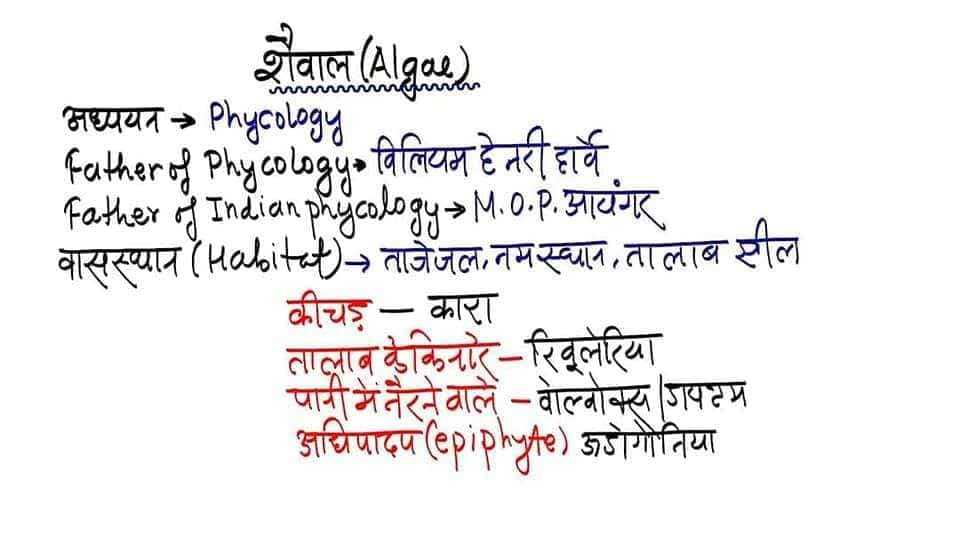 शैवाल (Algae)
अध्ययन → Phycology
Father of Phycology → विलियम हेनरी हार्वे
Father of Indian phycology → M.O.P. आयंगर
वासस्थान (Habitat) → ताजेजल, नमस्थान, तालाब झील
कीचड़ — कारा
तालाब के किनारे – रिवूलेरिया
पानी में तैरने वाले – वोल्वोक्स / डायटम
अधिपादप (epiphyte) ऊडोगोनिया